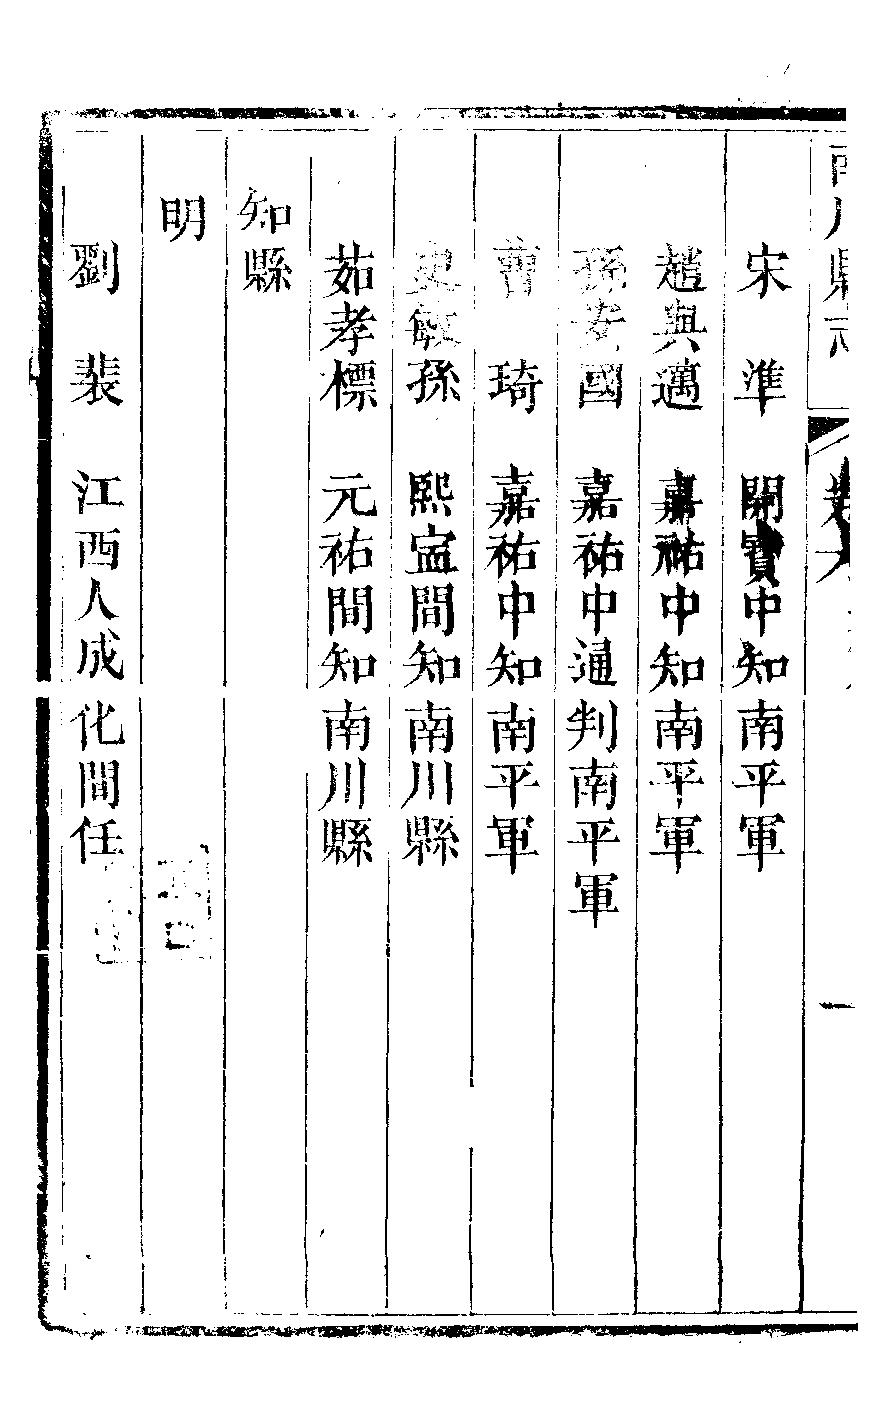 南川縣志
宋準 開寶中知南平軍
趙與邁 嘉祐中知南平軍
孫安國 嘉祐中通判南平軍
曹琦 嘉祐中知南平軍
史敏孫 熙寍間知南川縣
茹孝標 元祐間知南川縣
知縣
明
劉裴 江西人成化間任